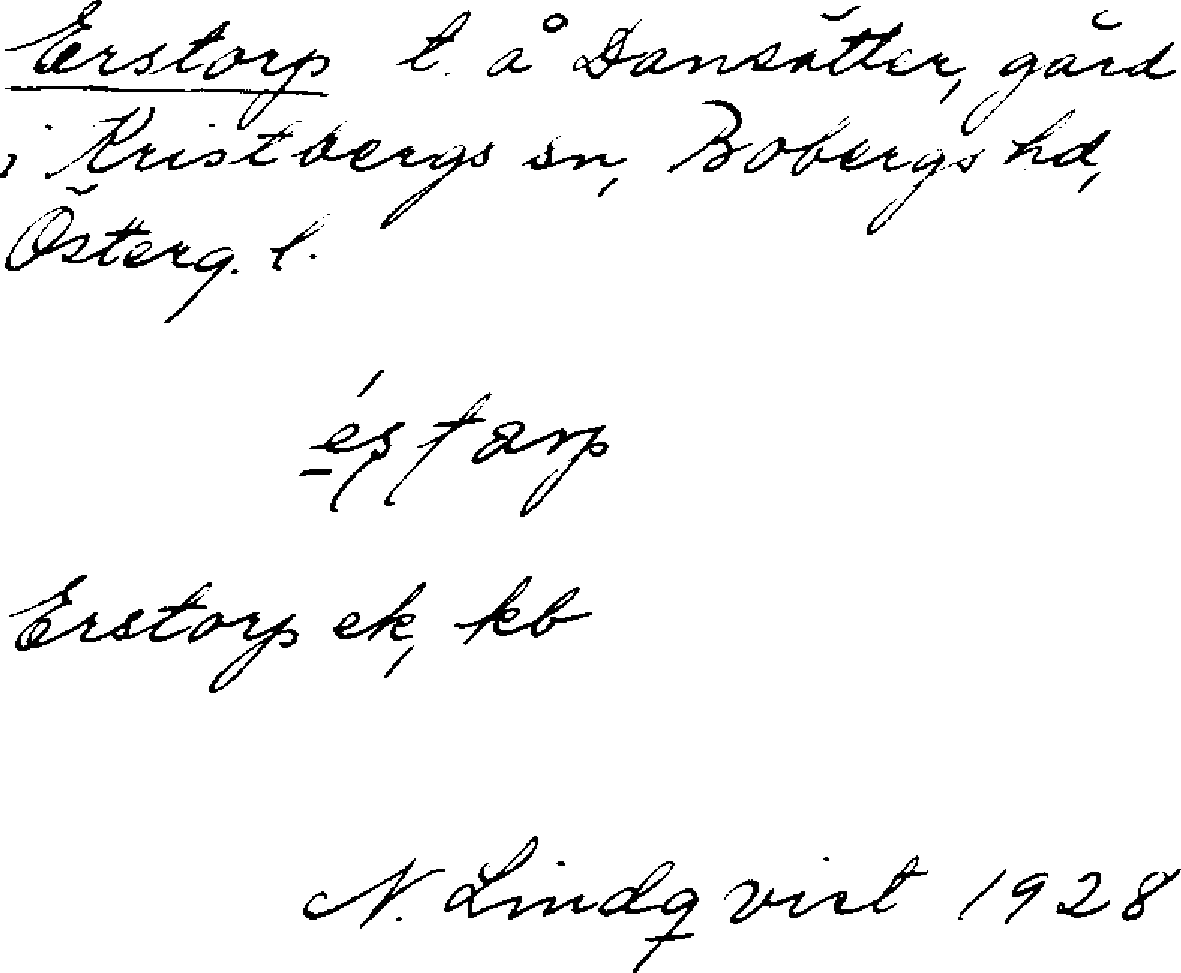 Erstorp t. å Dansätter, gård
i Kristbergs sn, Bobergs hd,
Österg. l.
Erstorp ek, kb
N. Lindqvist 1928